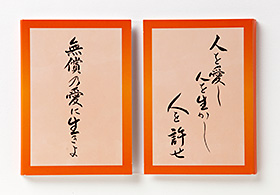 無償の愛に生きよ
人を愛し
人を生かし
人を許せ